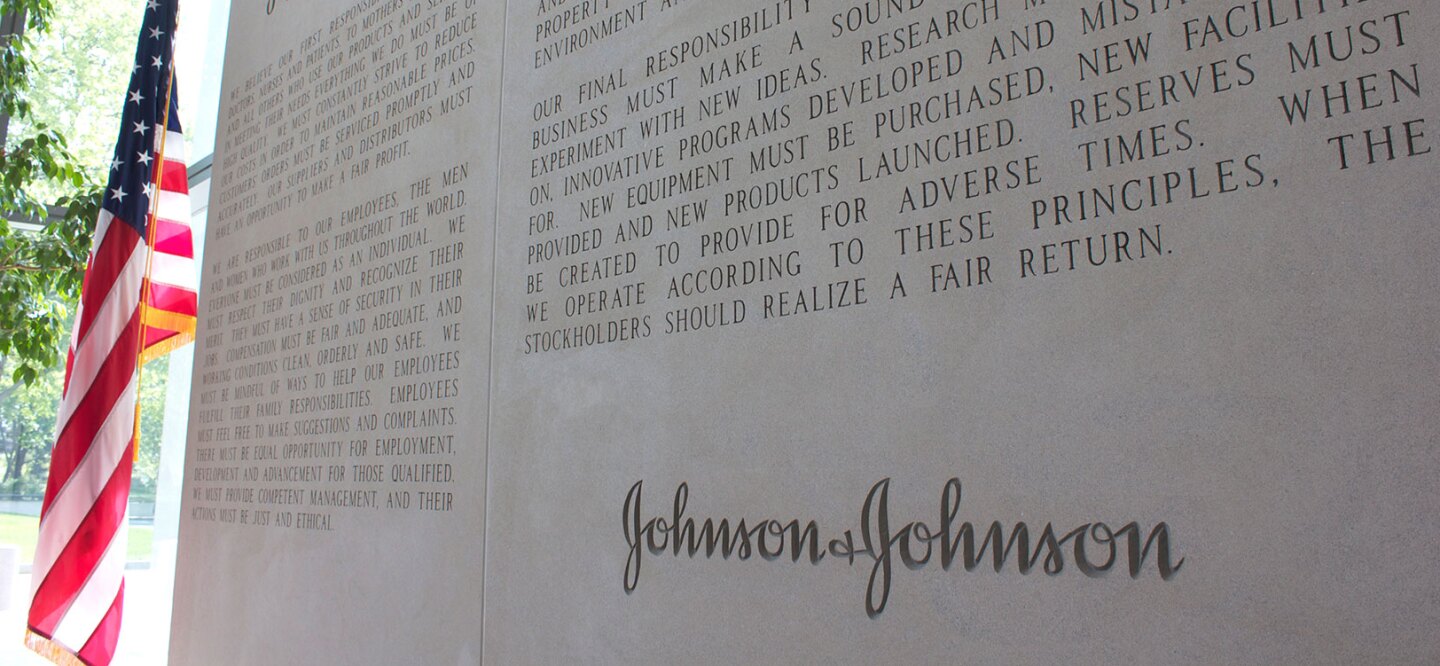 WE BELIEVE OUR FIRST RESPONSI
DOCTORS, NURSES AND PATIENTS, TO MOTHERS
AND ALL OTHERS WHO USE OUR PRODUCTS AND SE
IN MEETING THEIR NEEDS EVERYTHING WE DO MUST BE OF
HIGH QUALITY. WE MUST CONSTANTLY STRIVE TO REDUCE
OUR COSTS IN ORDER TO MAINTAIN REASONABLE PRICES.
CUSTOMERS' ORDERS MUST BE SERVICED PROMPTLY AND
ACCURATELY. OUR SUPPLIERS AND DISTRIBUTORS MUST
HAVE AN OPPORTUNITY TO MAKE A FAIR PROFIT.
WE ARE RESPONSIBLE TO OUR EMPLOYEES, THE MEN
AND WOMEN WHO WORK WITH US THROUGHOUT THE WORLD.
EVERYONE MUST BE CONSIDERED AS AN INDIVIDUAL. WE
MUST RESPECT THEIR DIGNITY AND RECOGNIZE THEIR
MERIT. THEY MUST HAVE A SENSE OF SECURITY IN THEIR
JOBS. COMPENSATION MUST BE FAIR AND ADEQUATE, AND
WORKING CONDITIONS CLEAN, ORDERLY AND SAFE. WE
MUST BE MINDFUL OF WAYS TO HELP OUR EMPLOYEES
FULFILL THEIR FAMILY RESPONSIBILITIES. EMPLOYEES
MUST FEEL FREE TO MAKE SUGGESTIONS AND COMPLAINTS.
THERE MUST BE EQUAL OPPORTUNITY FOR EMPLOYMENT,
DEVELOPMENT AND ADVANCEMENT FOR THOSE QUALIFIED.
WE MUST PROVIDE COMPETENT MANAGEMENT, AND THEIR
ACTIONS MUST BE JUST AND ETHICAL.
PROPERTY
ENVIRONMENT
OUR FINAL RESPONSIBILITY
BUSINESS MUST MAKE A SOUND
EXPERIMENT WITH NEW IDEAS. RESEARCH M
ON, INNOVATIVE PROGRAMS DEVELOPED AND MISTA
FOR. NEW EQUIPMENT MUST BE PURCHASED, NEW FACILITIE
PROVIDED AND NEW PRODUCTS LAUNCHED. RESERVES MUST
BE CREATED TO PROVIDE FOR ADVERSE TIMES. WHEN
WE OPERATE ACCORDING TO THESE PRINCIPLES, THE
STOCKHOLDERS SHOULD REALIZE A FAIR RETURN.
Johnson & Johnson